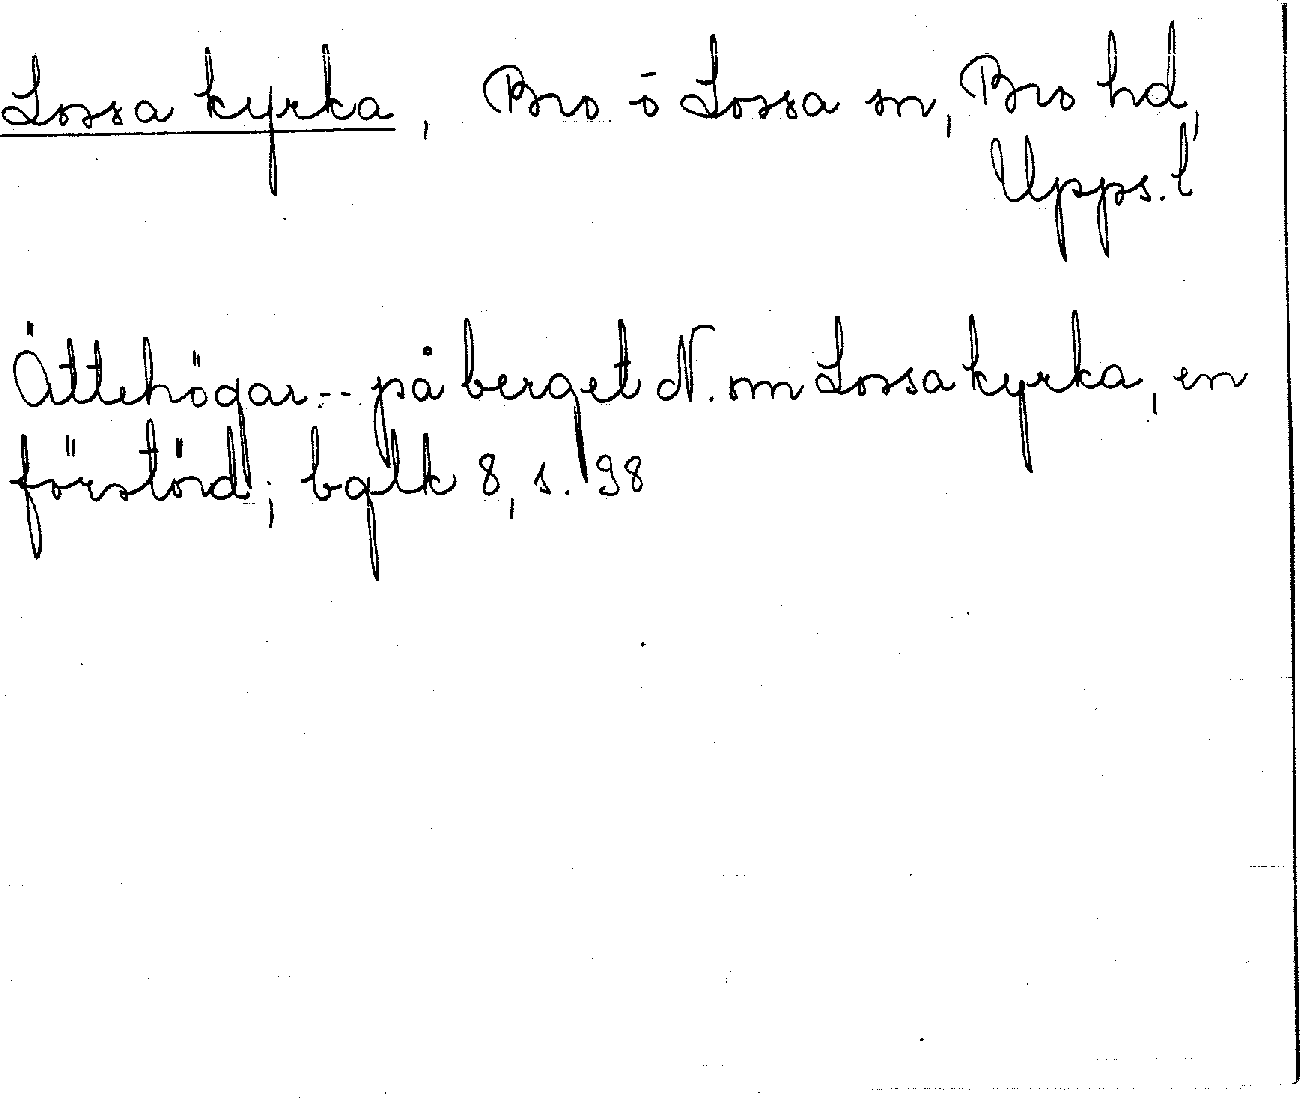 Lossa kyrka, Bro o Lossa sn, Bro hd,
Upps. l
Ättehögar -- på berget N. om Lossa kyrka, en
förstörd; bglk 8, s. 98